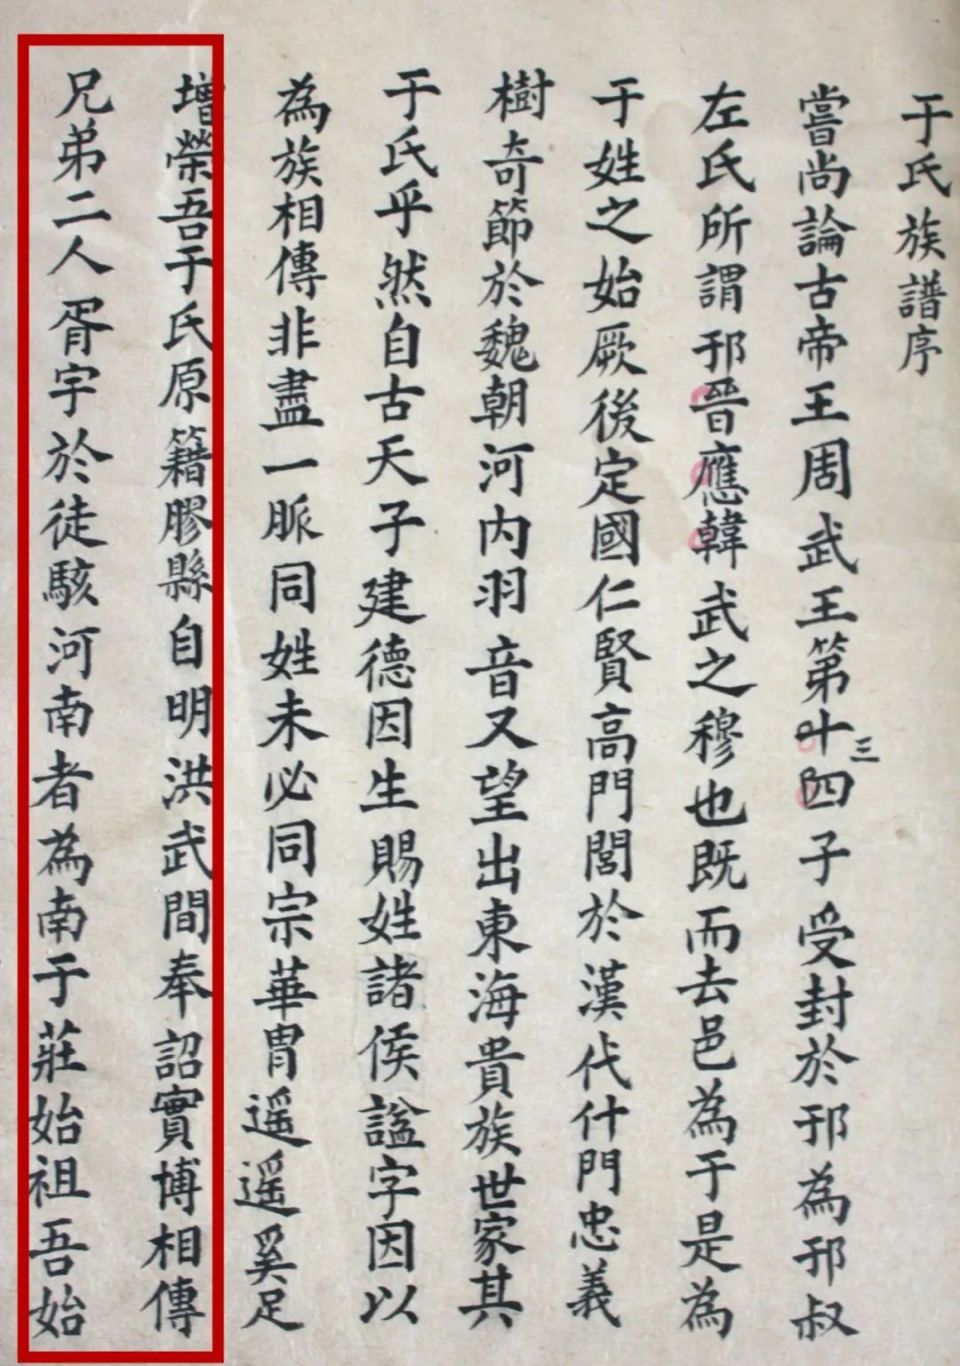 于氏族譜序
嘗尚論古帝王周武王第十四三子受封於邘為邘叔
左氏所謂邘晉應韓武之穆也既而去邑為于是為
于姓之始厥後定國仁賢高門閭於漢代什門忠義
樹奇節於魏朝河内羽音又望出東海貴族世家其
于氏乎然自古天子建德因生賜姓諸侯謚字因以
為族相傳非盡一脈同姓未必同宗華胄遥遥奚足
增榮吾于氏原籍膠縣自明洪武間奉詔實博相傳
兄弟二人胥宇於徒駭河南者為南于莊始祖吾始